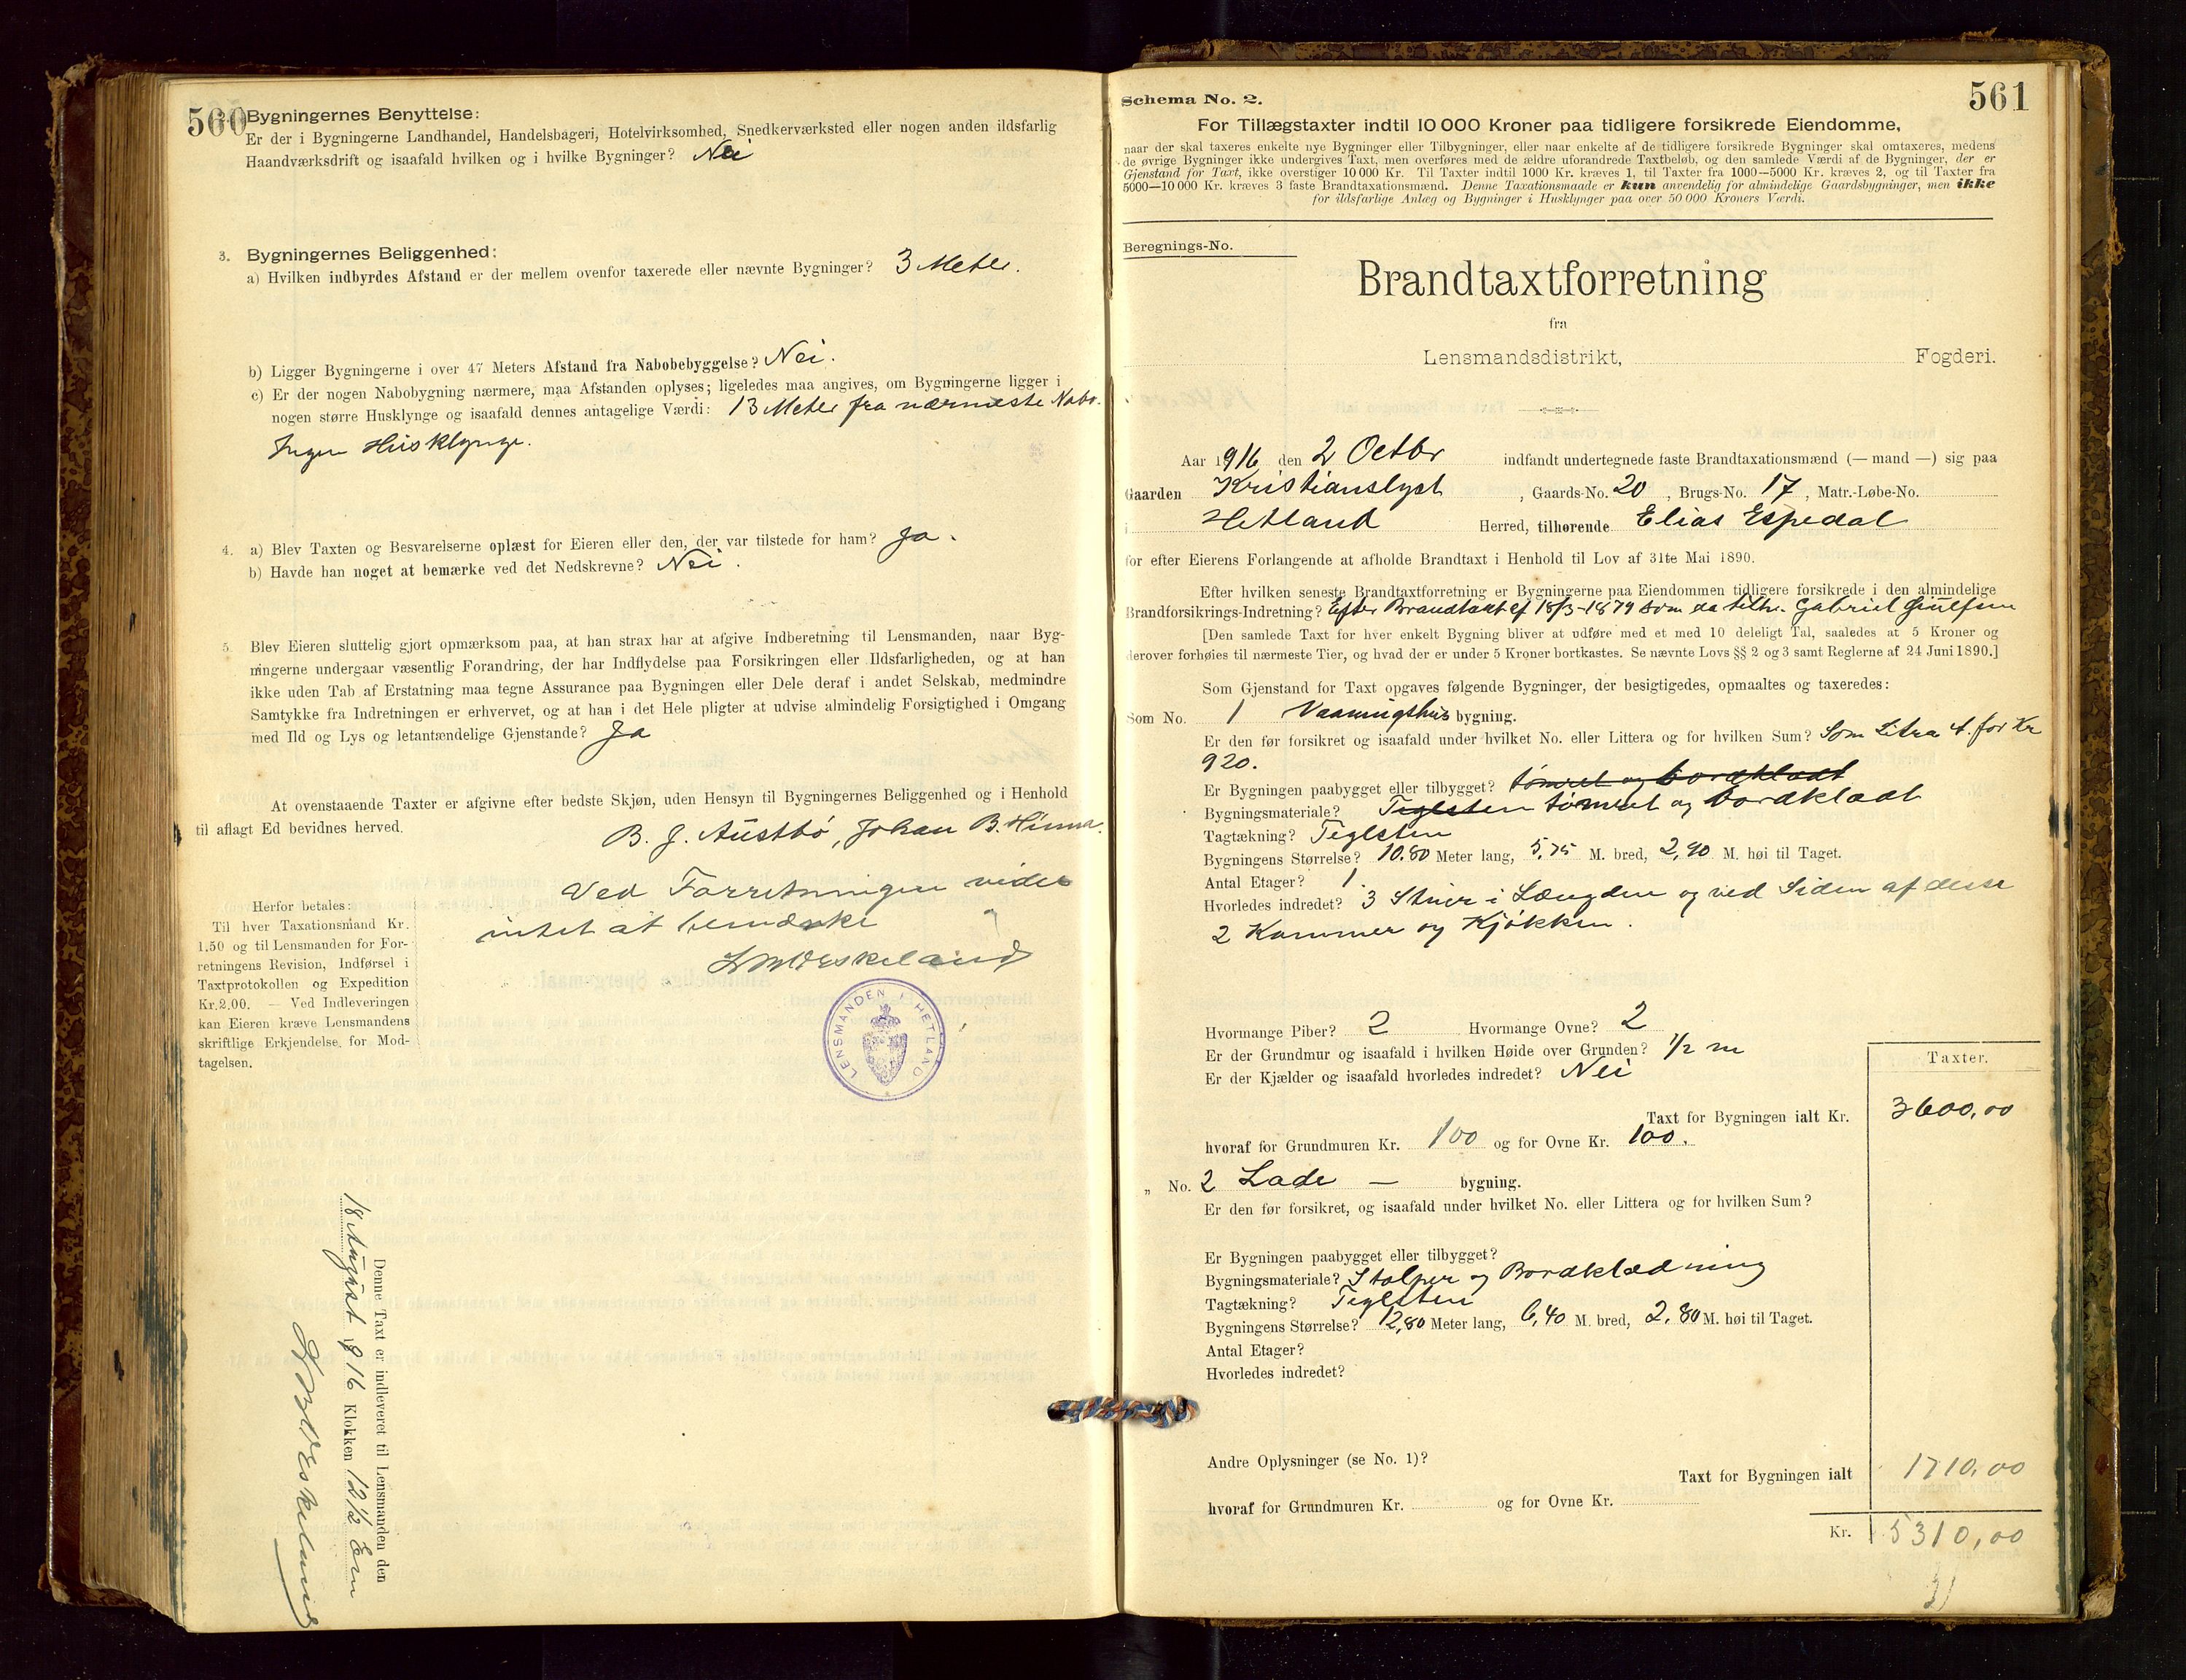 560
Bygningernes Benyttelse:
Er der i Bygningerne Landhandel, Handelsbageri, Hotelvirksomhed, Snedkerværksted eller nogen anden ildsfarlig
Haandværksdrift og isaafald hvilken og i hvilke Bygninger? Nei
3. Bygningernes Beliggenhed:
a) Hvilken indbyrdes Afstand er der mellem ovenfor taxerede eller nævnte Bygninger? 3 Meter.
b) Ligger Bygningerne i over 47 Meters Afstand fra Nabobebyggelse? Nei.
c) Er der nogen Nabobygning nærmere, maa Afstanden oplyses; ligeledes maa angives, om Bygningerne ligger i
nogen større Husklynge og isaafald dennes antagelige Værdi: 13 Meter fra nærmeste Nabo.
Ingen Husklynge.
4. a) Blev Taxten og Besvarelserne oplæst for Eieren eller den, der var tilstede for ham? Ja.
b) Havde han noget at bemærke ved det Nedskrevne? Nei.
5. Blev Eieren sluttelig gjort opmærksom paa, at han strax har at afgive Indberetning til Lensmanden, naar Byg-
ningerne undergaar væsentlig Forandring, der har Indflydelse paa Forsikringen eller Ildsfarligheden, og at han
ikke uden Tab af Erstatning maa tegne Assurance paa Bygningen eller Dele deraf i andet Selskab, medmindre
Samtykke fra Indretningen er erhvervet, og at han i det Hele pligter at udvise almindelig Forsigtighed i Omgang
med Ild og Lys og letantændelige Gjenstande? Ja
At ovenstaaende Taxter er afgivne efter bedste Skjøn, uden Hensyn til Bygningernes Beliggenhed og i Henhold
til aflagt Ed bevidnes herved.
B. J. Austbø, Johan B. Hinna.
Ved Forretningen vides
intet at bemærke
Herfor betales:
Til hver Taxationsmand Kr.
1,50 og til Lensmanden for For-
retningens Revision, Indførsel i
Taxtprotokollen og Expedition
Kr. 2,00. — Ved Indleveringen
kan Eieren kræve Lensmandens
skriftlige Erkjendelse for Mod-
tagelsen.
LENSMANDEN I HETLAND
Denne Taxt er indleveret til Lensmanden den
18 August 1916 Klokken 12 1/2 Em
561
Schema No. 2.
For Tillægstaxter indtil 10 000 Kroner paa tidligere forsikrede Eiendomme,
naar der skal taxeres enkelte nye Bygninger eller Tilbygninger, eller naar enkelte af de tidligere forsikrede Bygninger skal omtaxeres, medens
de øvrige Bygninger ikke undergives Taxt, men overføres med de ældre uforandrede Taxtbeløb, og den samlede Værdi af de Bygninger, der er
Gjenstand for Taxt, ikke overstiger 10 000 Kr. Til Taxter indtil 1000 Kr. kræves 1, til Taxter fra 1000—5000 Kr. kræves 2, og til Taxter fra
5000—10 000 Kr. kræves 3 faste Brandtaxationsmænd. Denne Taxationsmaade er kun anvendelig for almindelige Gaardsbygninger, men ikke
for ildsfarlige Anlæg og Bygninger i Husklynger paa over 50 000 Kroners Værdi.
Beregnings-No.
Brandtaxtforretning
fra
Lensmandsdistrikt, Fogderi.
Aar 1916 den 2 Octbr indfandt undertegnede faste Brandtaxationsmænd (— mand —) sig paa
Gaarden Kristianslyst, Gaards-No. 20, Brugs-No. 17, Matr.-Løbe-No.
i Hetland Herred, tilhørende Elias Espedal
for efter Eierens Forlangende at afholde Brandtaxt i Henhold til Lov af 31te Mai 1890.
Efter hvilken seneste Brandtaxtforretning er Bygningerne paa Eiendommen tidligere forsikrede i den almindelige
Brandforsikrings-Indretning? Efter Brandtaxt af 18/3-1879 som da tilh. Gabriel
[Den samlede Taxt for hver enkelt Bygning bliver at udføre med et med 10 deleligt Tal, saaledes at 5 Kroner og
derover forhøies til nærmeste Tier, og hvad der er under 5 Kroner bortkastes. Se nævnte Lovs §§ 2 og 3 samt Reglerne af 24 Juni 1890.]
Som Gjenstand for Taxt opgaves følgende Bygninger, der besigtigedes, opmaaltes og taxeredes:
Som No. 1 Vaaningshus bygning.
Er den før forsikret og isaafald under hvilket No. eller Littera og for hvilken Sum? Som Litra A. for Kr
920.
Er Bygningen paabygget eller tilbygget? tømret og bordklædt
Bygningsmateriale? Teglsten tømret og bordklædt
Tagtækning? Teglsten
Bygningens Størrelse? 10.80 Meter lang, 5,75 M. bred, 2,90 M. høi til Taget.
Antal Etager? 1.
Hvorledes indredet? 3 Stuer i Længden og ved Siden af disse
2 Kammer og Kjøkken.
Hvormange Piber? 2 Hvormange Ovne? 2
Er der Grundmur og isaafald i hvilken Høide over Grunden? 1/2 m
Er der Kjælder og isaafald hvorledes indredet? Nei
Taxter.
Taxt for Bygningen ialt Kr. 3600,00
hvoraf for Grundmuren Kr. 100 og for Ovne Kr. 100.
„ No. 2 Lade — bygning.
Er den før forsikret, og isaafald under hvilket No. eller Littera og for hvilken Sum?
Er Bygningen paabygget eller tilbygget?
Bygningsmateriale? Stolper og Bordklædning
Tagtækning? Teglsten
Bygningens Størrelse? 12,80 Meter lang, 6,40 M. bred, 2,80 M. høi til Taget.
Antal Etager?
Hvorledes indredet?
Andre Oplysninger (se No. 1)?
Taxt for Bygningen ialt 1710,00
hvoraf for Grundmuren Kr. og for Ovne Kr.
Kr. 5310,00